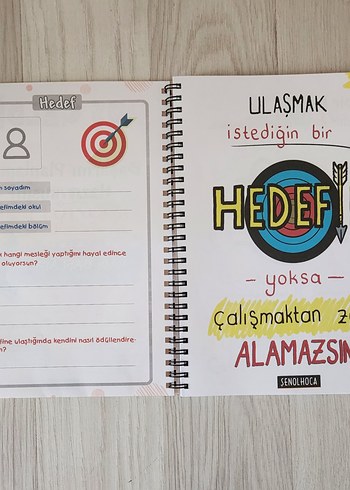 Hedef
soyadım
hedefimdeki okul
hedefimdeki bölüm
hangi mesleği yaptığını hayal edince
oluyorsun?
ulaştığında kendini nasıl ödüllendire-
ULAŞMAK
istediğin bir
HEDEF
- yoksa -
çalışmaktan
ALAMAZSIN
SENOLHOCA